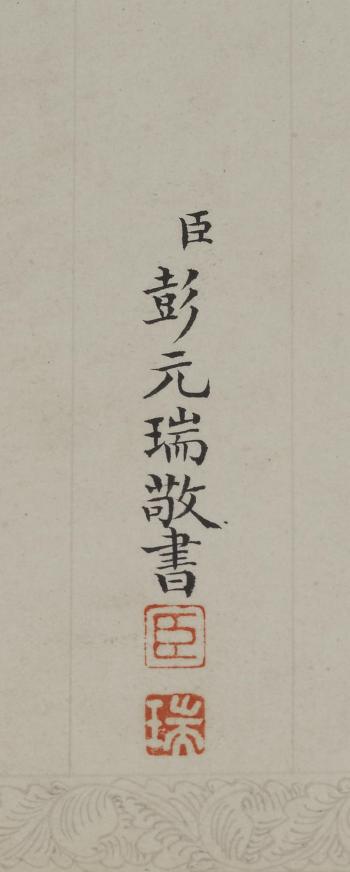 臣彭元瑞敬書
臣
瑞